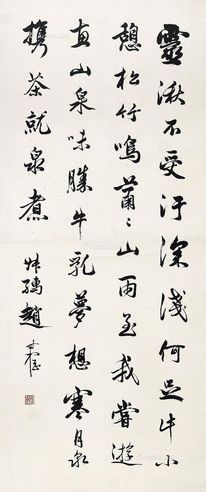 靈湫不受汙深淺何足斗小
憩松竹鳴蕭〻山雨至我嘗遊
直山泉味勝牛乳夢想寒月泉
携茶就泉煮 叔孺趙時棡